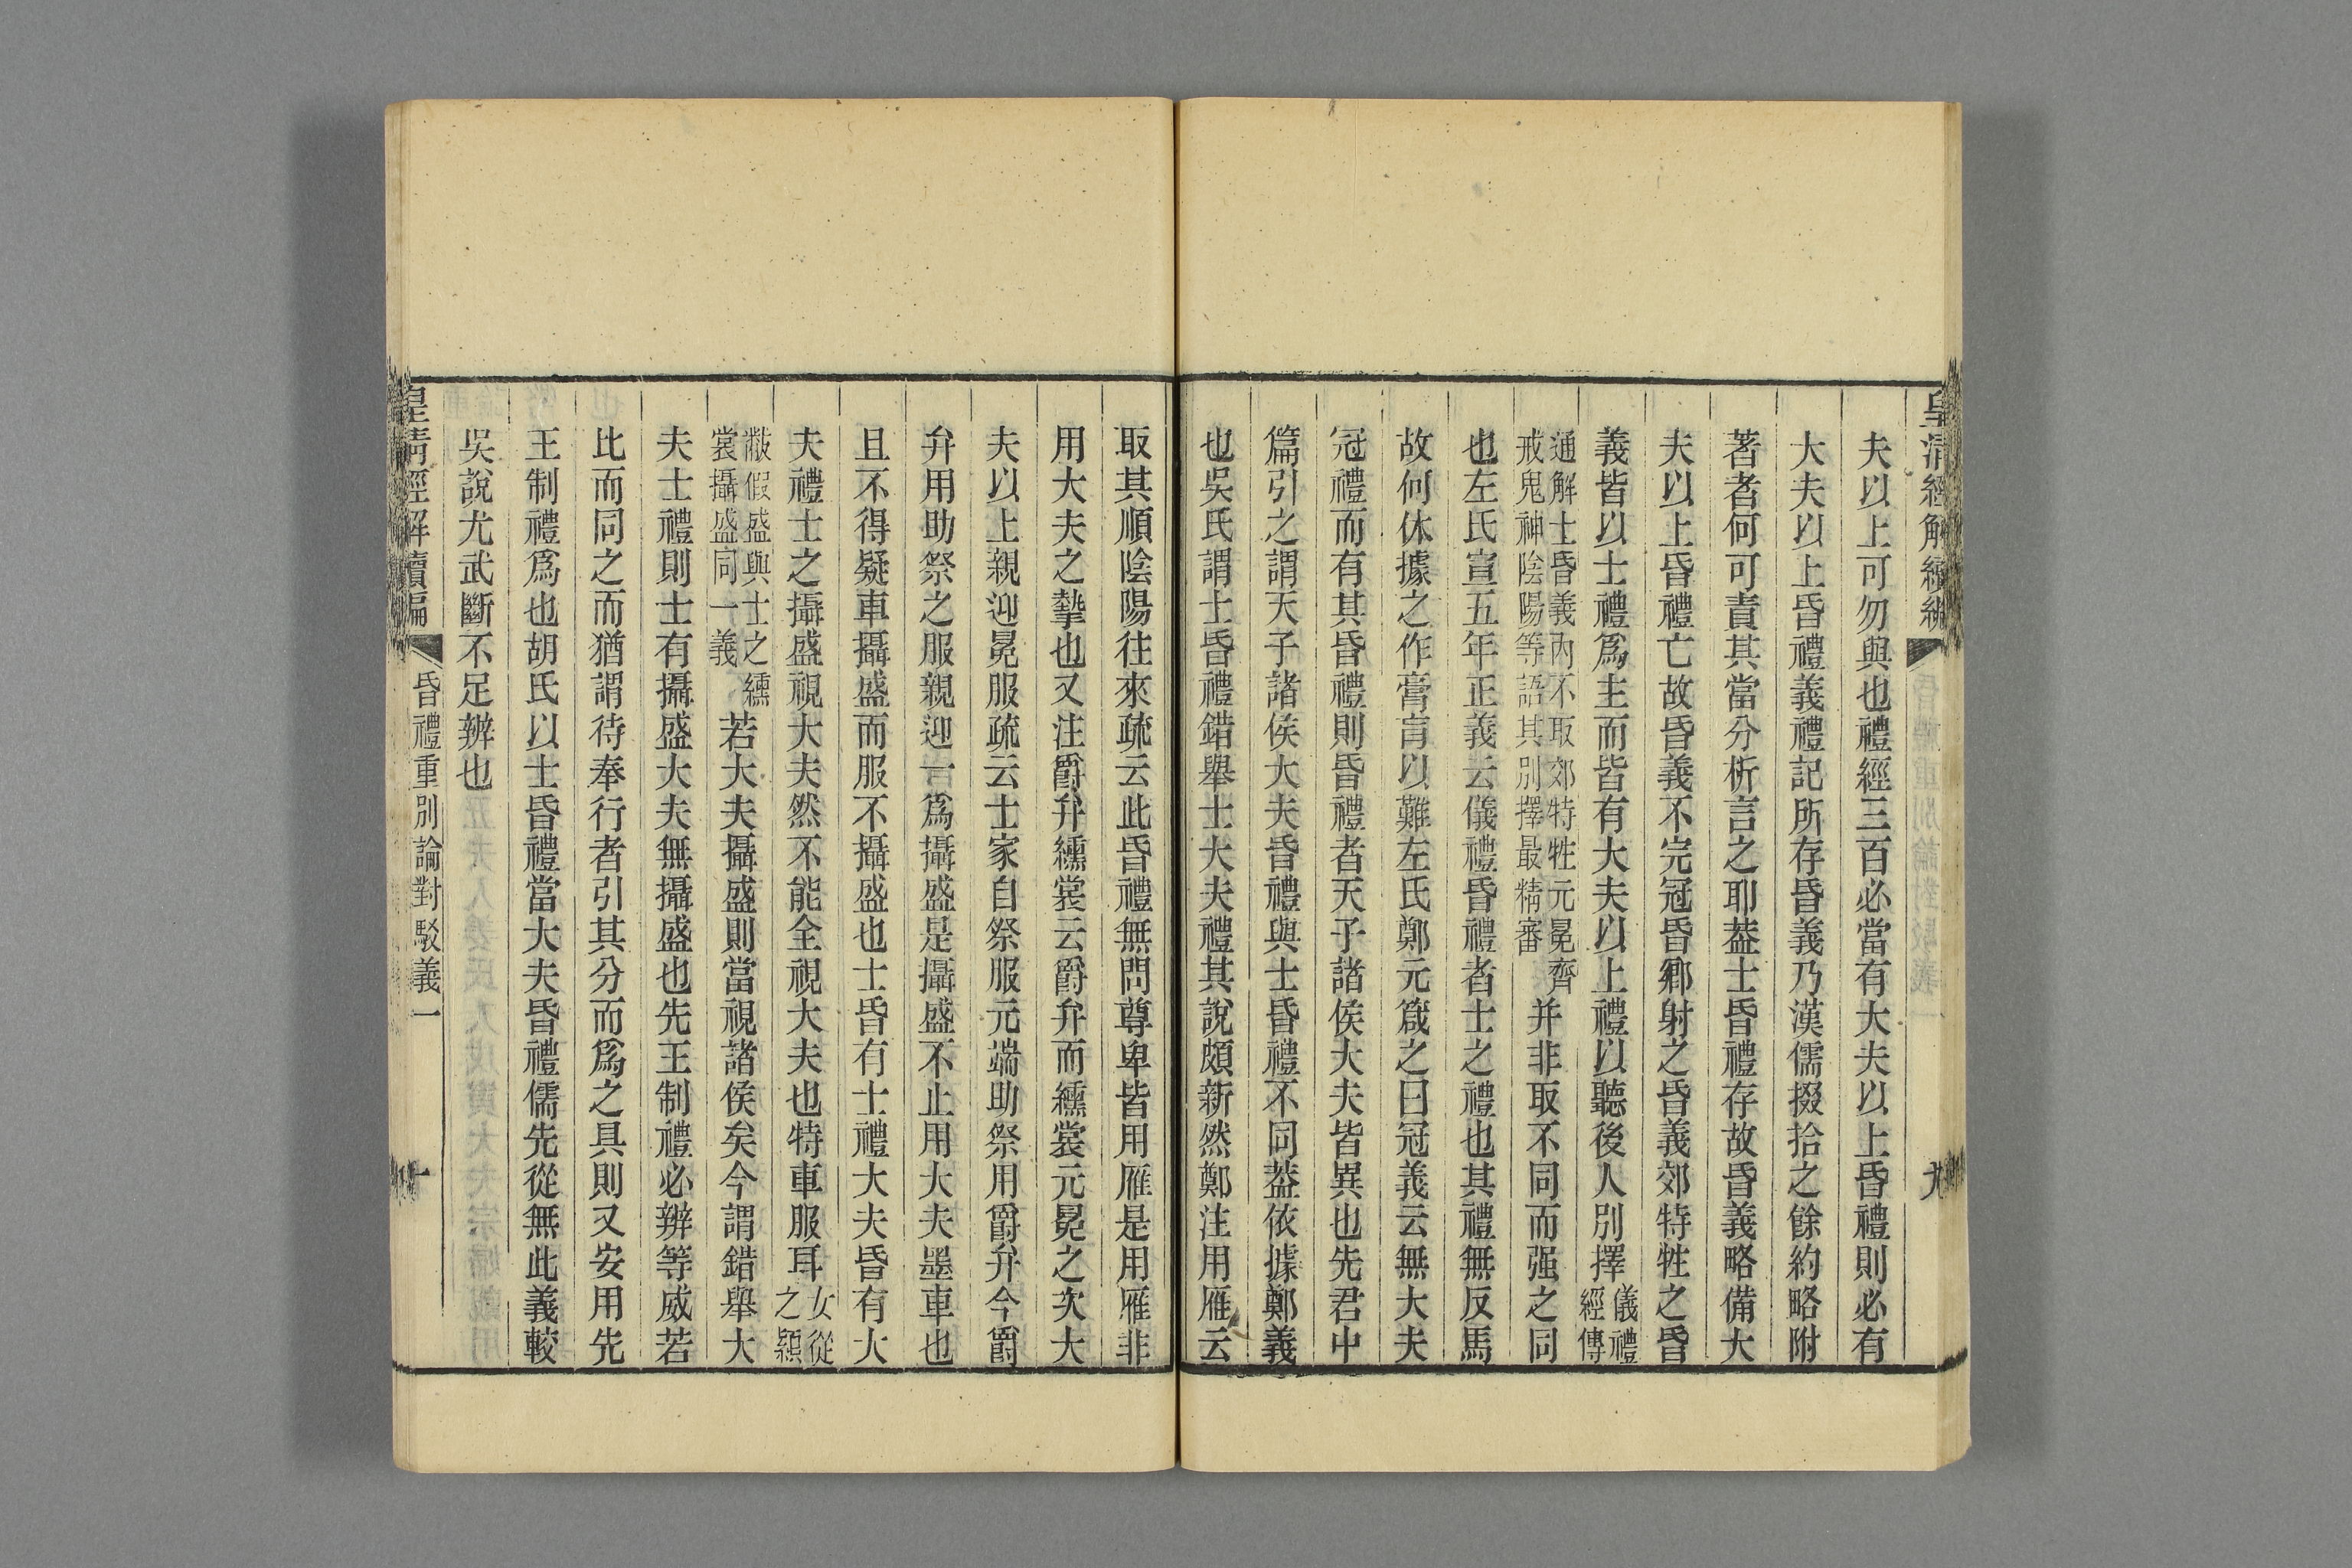 皇清經解續編
九
夫以上可勿與也禮經三百必當有大夫以上昏禮則必有
大夫以上昏禮義禮記所存昏義乃漢儒掇拾之餘約略附
著者何可責其當分析言之耶葢士昏禮存故昏義略備大
夫以上昏禮亡故昏義不完冠昏鄉射之昏義郊特牲之昏
義皆以士禮爲主而皆有大夫以上禮以聽後人別擇儀禮經傳
通解士昏義內不取郊特牲元冕齊戒鬼神陰陽等語其別擇最精審并非取不同而强之同
也左氏宣五年正義云儀禮昏禮者士之禮也其禮無反馬
故何休據之作膏肓以難左氏鄭元箴之曰冠義云無大夫
冠禮而有其昏禮則昏禮者天子諸侯大夫皆異也先君中
篇引之謂天子諸侯大夫昏禮與士昏禮不同葢依據鄭義
也吳氏謂士昏禮錯舉士大夫禮其說頗新然鄭注用雁云
取其順陰陽往來疏云此昏禮無問尊卑皆用雁是用雁非
用大夫之摯也又注爵弁纁裳云爵弁而纁裳元冕之次大
夫以上親迎冕服疏云士家自祭服元端助祭用爵弁今爵
弁用助祭之服親迎一爲攝盛是攝盛不止用大夫墨車也
且不得疑車攝盛而服不攝盛也士昏有士禮大夫昏有大
夫禮士之攝盛視大夫然不能全視大夫也特車服耳女從之顈
黻假盛與士之纁裳攝盛同一義若大夫攝盛則當視諸侯矣今謂錯舉大
夫士禮則士有攝盛大夫無攝盛也先王制禮必辨等威若
比而同之而猶謂待奉行者引其分而爲之具則又安用先
王制禮爲也胡氏以士昏禮當大夫昏禮儒先從無此義較
吳說尤武斷不足辨也
皇清經解續編
昏禮重別論對駁義一
十